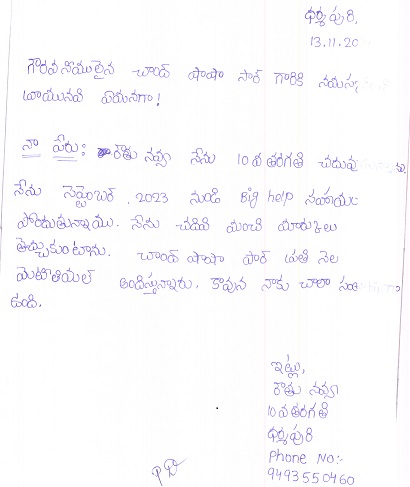 ధర్మపురి,
13.11.20
గౌరవనీయులైన చాంద్ పాషా సార్ గారికి నమస్క
వ్రాయునది ఏమనగా!
నా పేరు: రౌతు నవ్యా నేను 10వ తరగతి చదువు
నేను సెప్టెంబర్, 2023 నుండి Big help సహాయం
పొందుతున్నాము. నేను చదివి మంచి మార్కులు
తెచ్చుకుంటాను. చాంద్ పాషా సార్ ప్రతి నెల
మెటీరియల్ అందిస్తున్నారు. కావున నాకు చాలా
ఉంది.
ఇట్లు,
రౌతు నవ్యా
10వ తరగతి
ధర్మపురి
Phone No:-
9493550460